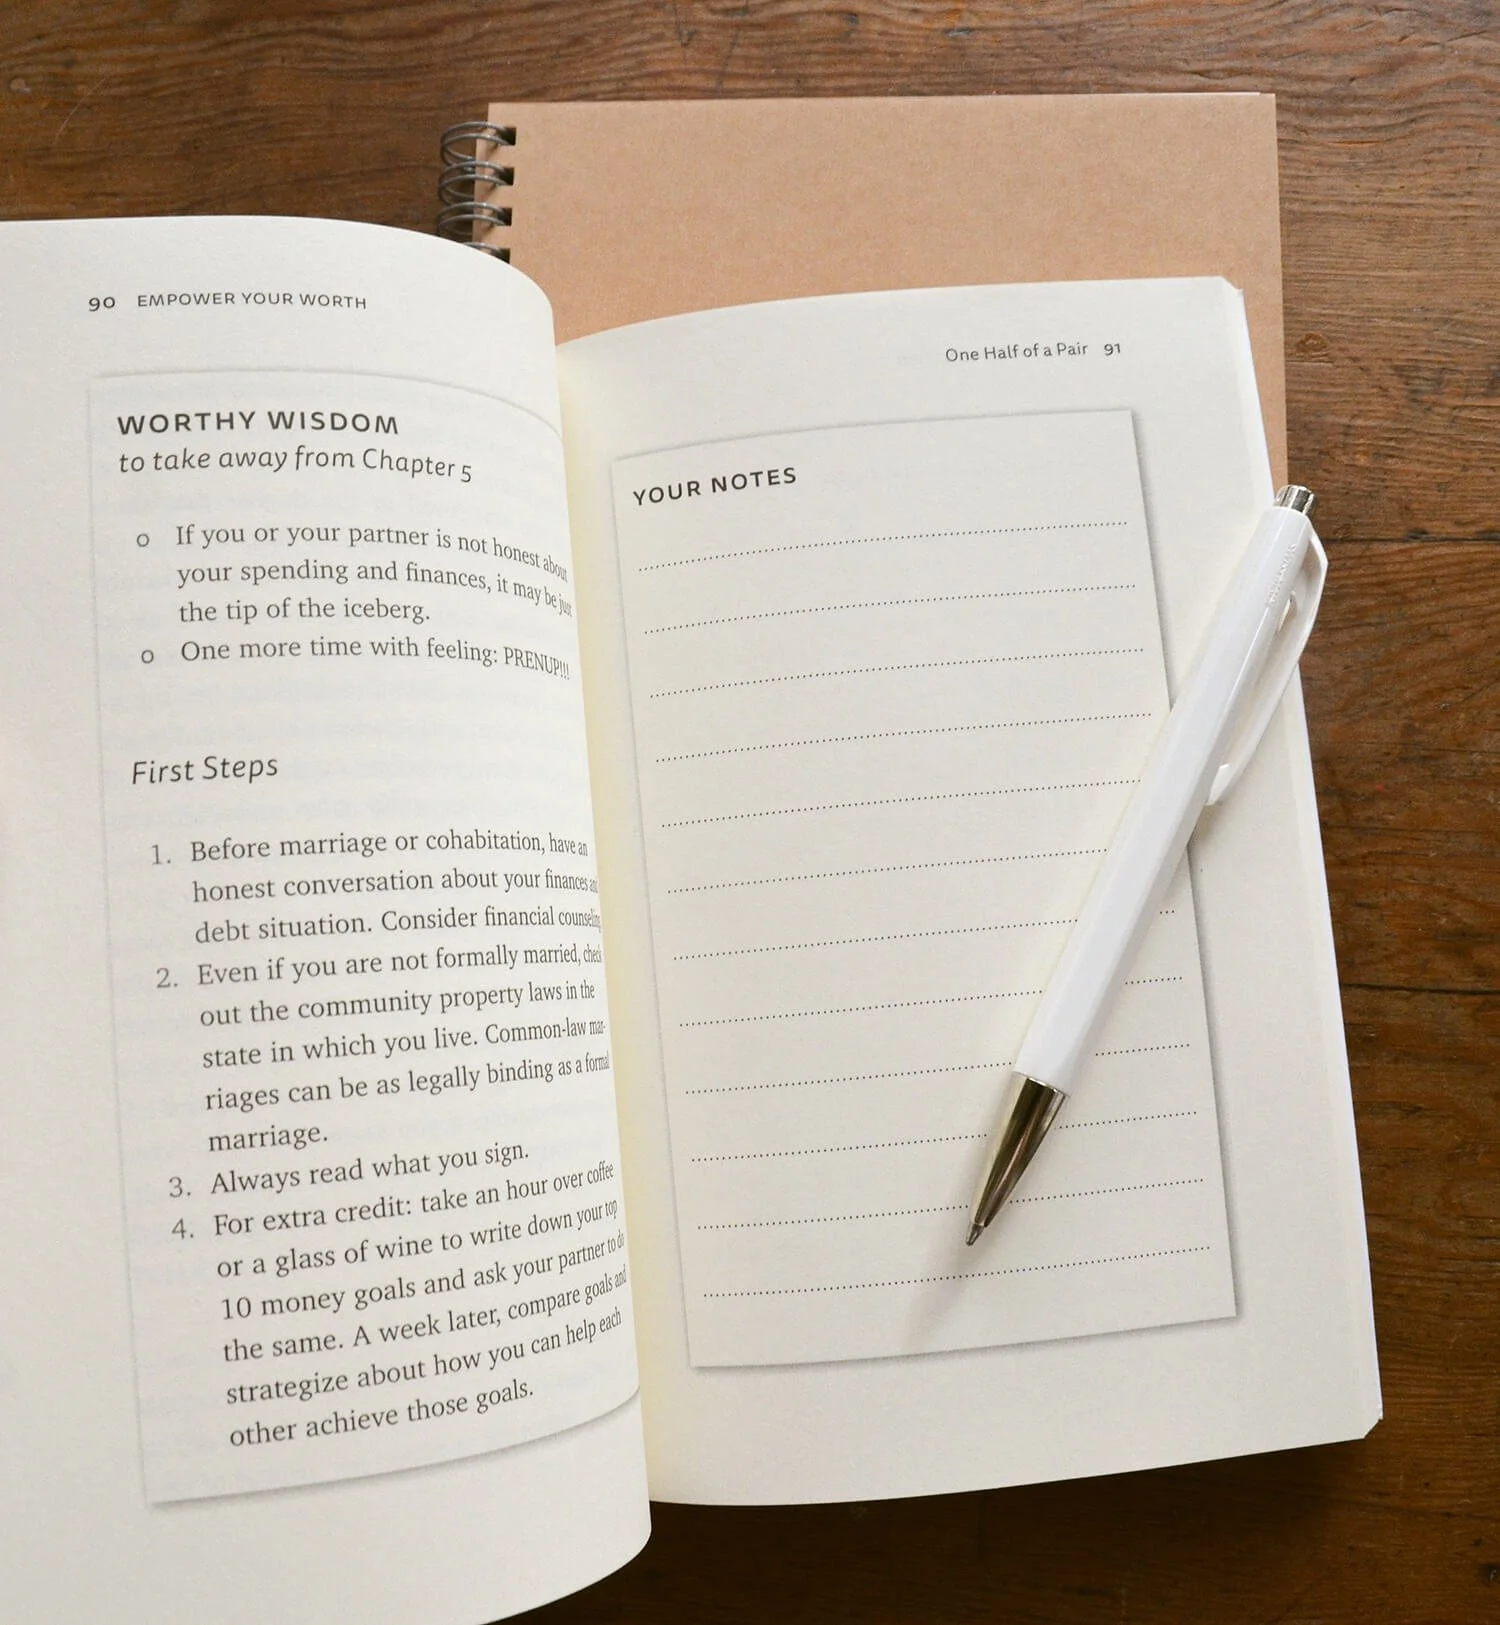 90 EMPOWER YOUR WORTH
WORTHY WISDOM
to take away from Chapter 5
o If you or your partner is not honest about
your spending and finances, it may be just
the tip of the iceberg.
o One more time with feeling: PRENUP!!!
First Steps
1. Before marriage or cohabitation, have an
honest conversation about your finances and
debt situation. Consider financial counseling
2. Even if you are not formally married, check
out the community property laws in the
state in which you live. Common-law mar-
riages can be as legally binding as a formal
marriage.
3. Always read what you sign.
4. For extra credit: take an hour over coffee
or a glass of wine to write down your top
10 money goals and ask your partner to do
the same. A week later, compare goals and
strategize about how you can help each
other achieve those goals.
One Half of a Pair 91
YOUR NOTES